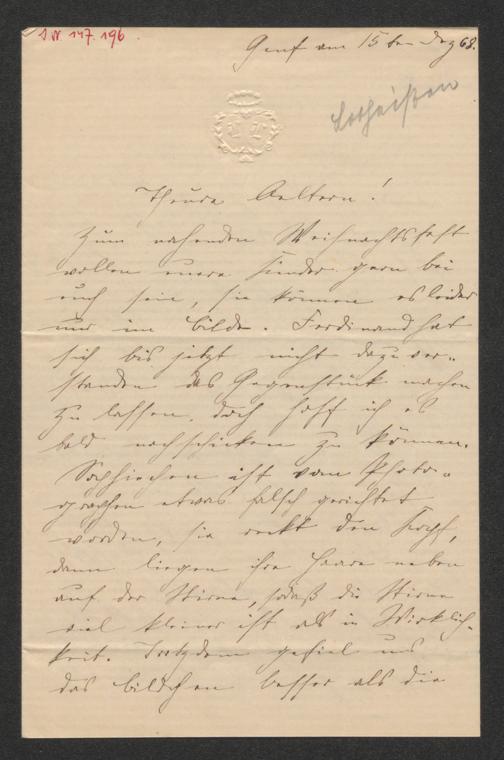 I N 147.196
Genf am 15ten Dez 68.
Lotheissen
Theure Aeltern!
Zum nahenden Weihnachtsfest
wollen eure Kinder gern bei
euch sein, sie können es leider
nur im Bilde. Ferdinand hat
sich bis jetzt nicht dazu ver-
standen das Gegenstück machen
zu lassen, doch hoff ich es
bald nachschicken zu können.
Sophiechen ist vom Photo-
graphen etwas falsch gerichtet
worden, sie reckt den Kopf,
dann liegen ihre Haare neben
auf der Stirne, sodaß die Stirne
viel kleiner ist als in Wirklich-
keit. Trotzdem gefiel uns
das Bildchen besser als die